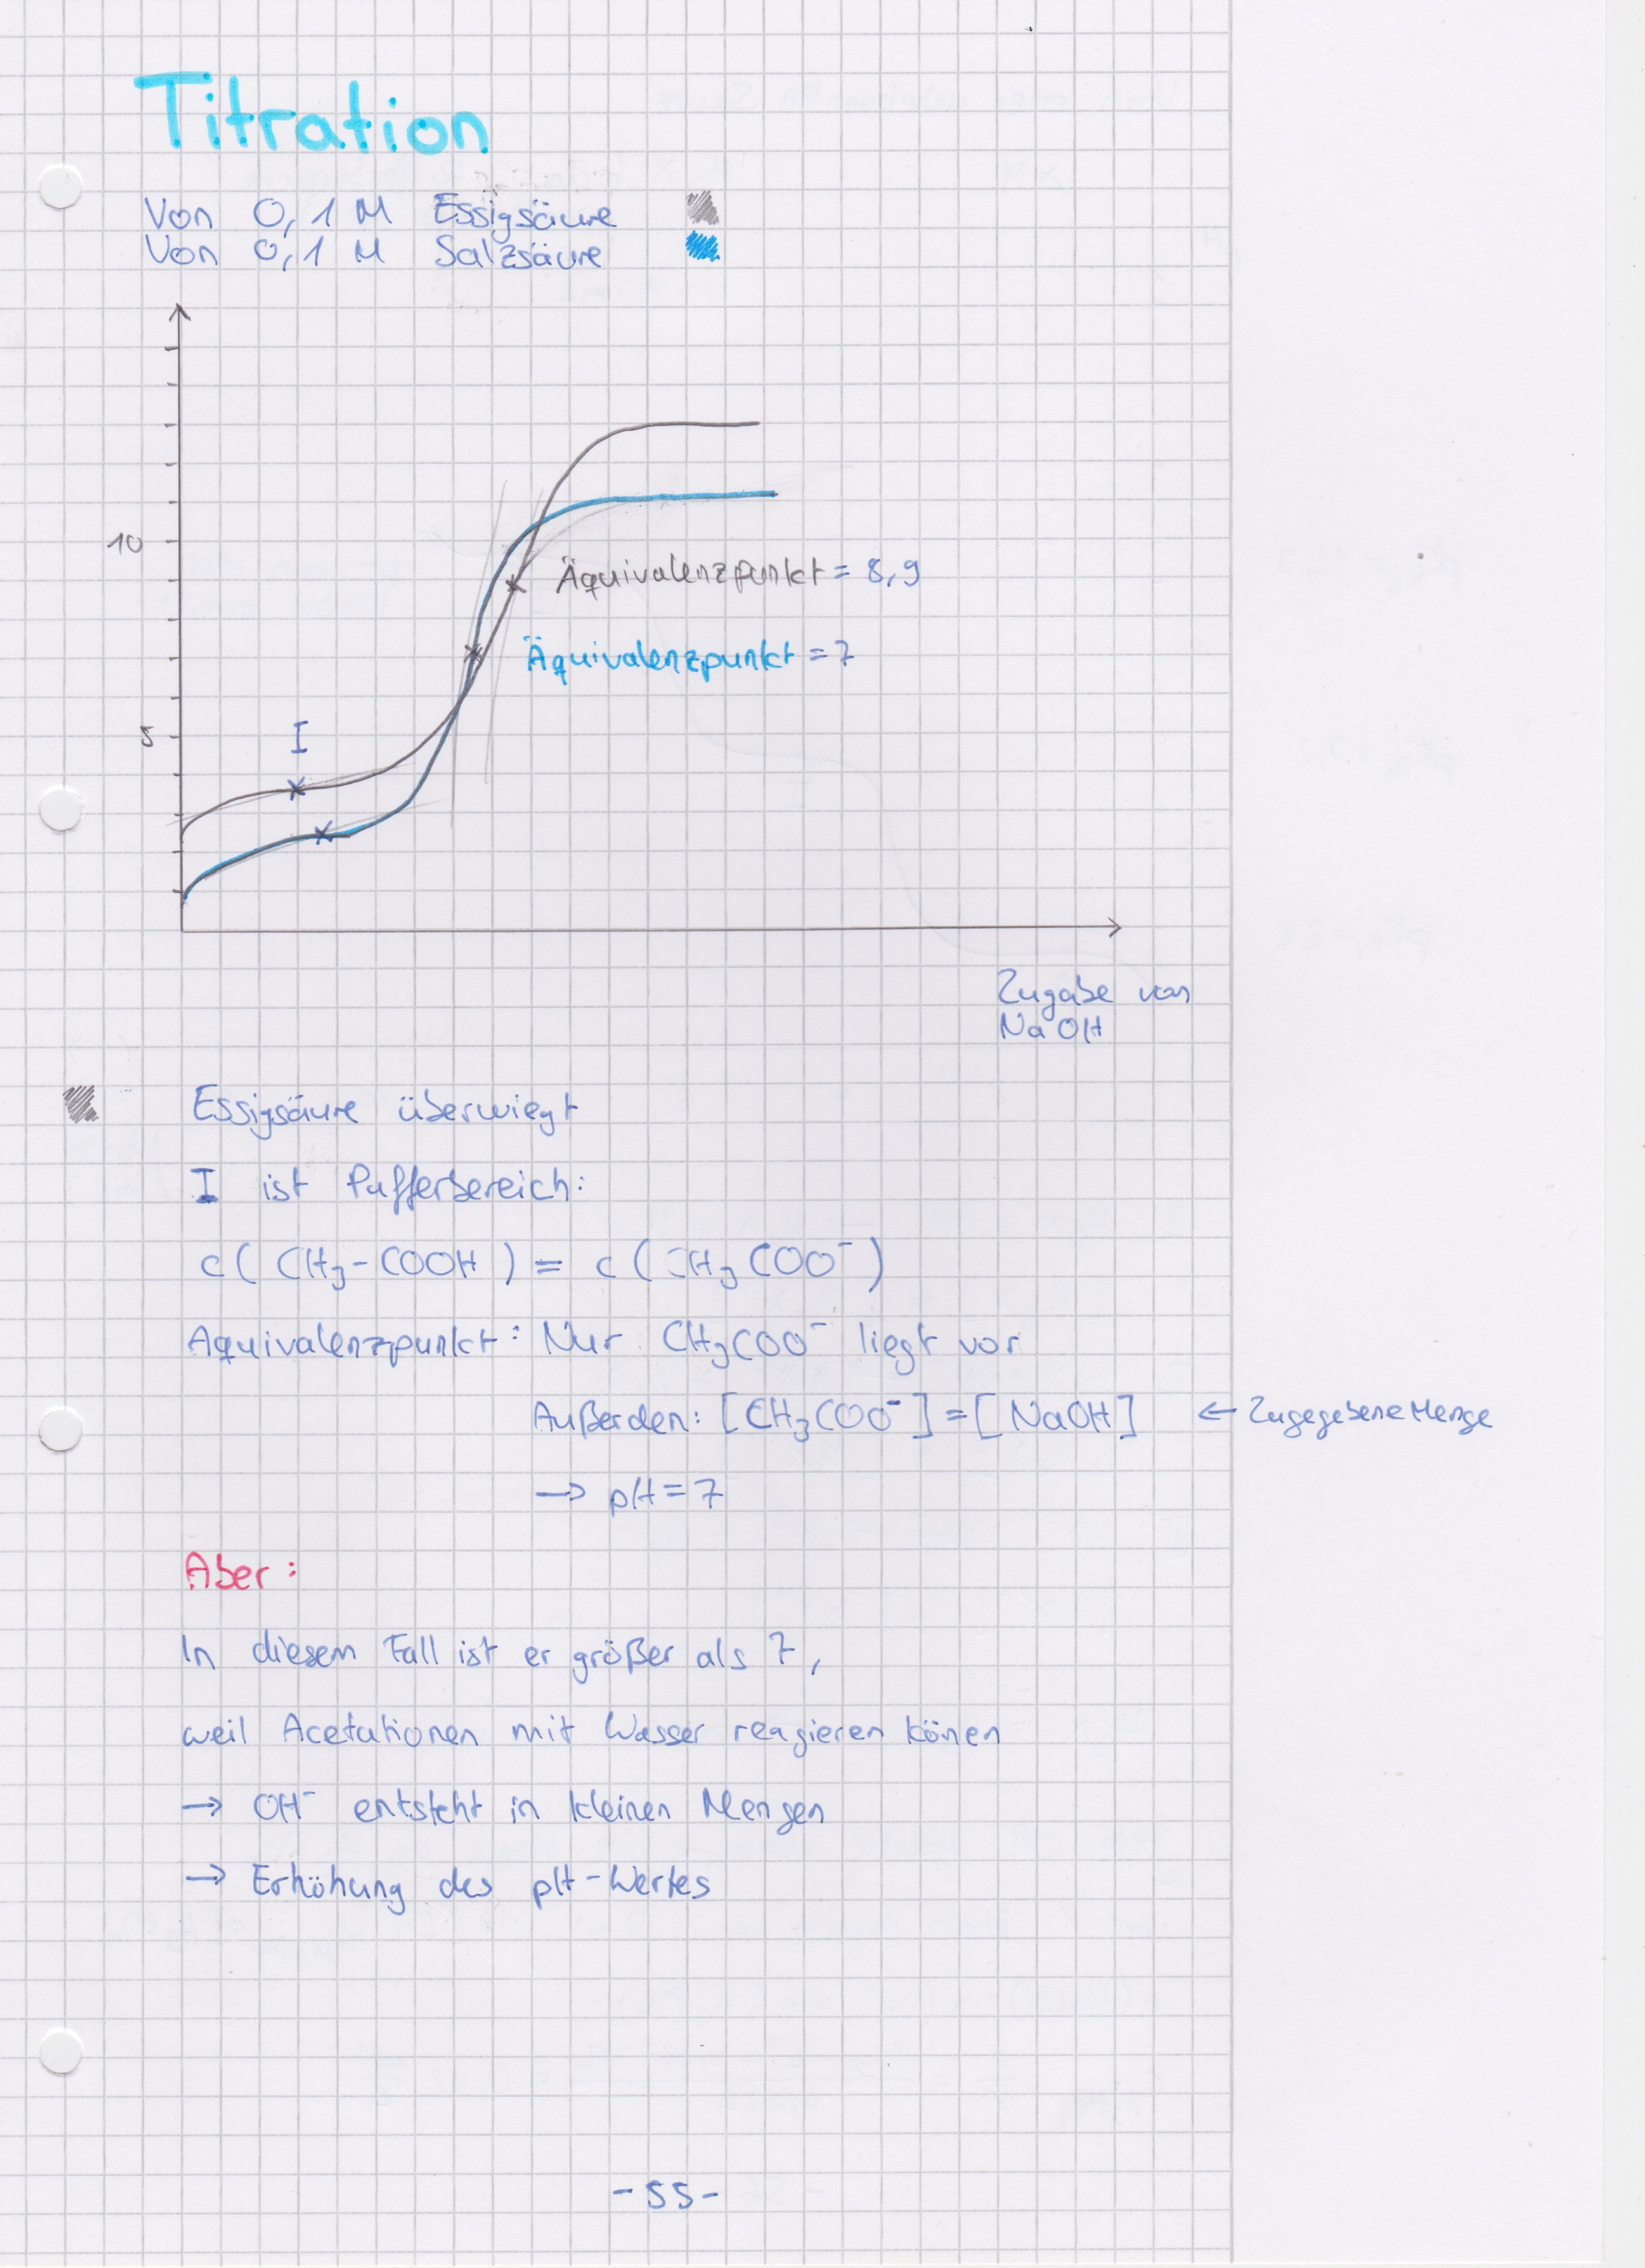 Titration
Von 0,1 M Essigsäure
Von 0,1 M Salzsäure
10
Äquivalenzpunkt = 8,9
Äquivalenzpunkt = 7
I
5
Zugabe von
NaOH
Essigsäure überwiegt
I ist Pufferbereich:
c( CH₃-COOH ) = c ( CH₃COO⁻ )
Äquivalenzpunkt: Nur CH₃COO⁻ liegt vor
Außerden: [CH₃COO⁻] = [NaOH] ← Zugegebene Menge
→ pH = 7
Aber:
In diesem Fall ist er größer als 7,
weil Acetationen mit Wasser reagieren könen
→ OH⁻ entsteht in kleinen Mengen
→ Erhöhung des pH-Wertes
- 55 -